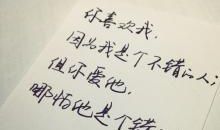 你喜欢我，
因为我是个不错的人；
但你爱他，
哪怕他是个错